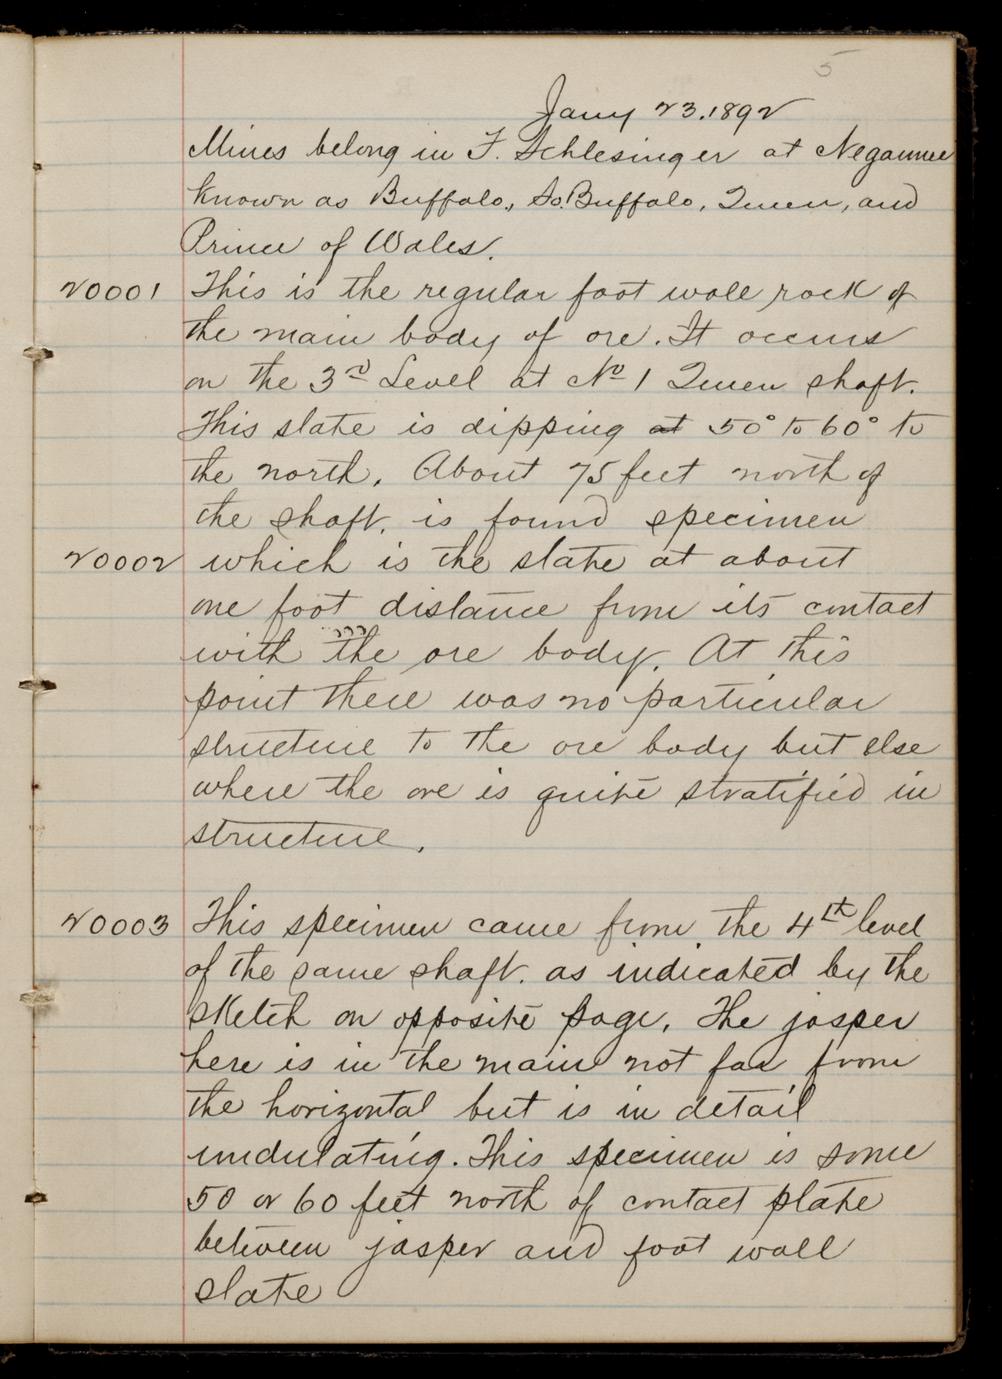 5
Jany 23. 1892
Mines belong in F. Schlesinger at Negaunee
known as Buffalo, So. Buffalo, Queen, and
Prince of Wales.
20001 This is the regular foot wall rock of
the main body of ore. It occurs
on the 3rd Level at No 1 Queen shaft.
This slate is dipping at 50° to 60° to
the north. About 75 feet north of
the shaft. is found specimen
20002 which is the slate at about
one foot distance from its contact
with the ore body. At this
point there was no particular
structure to the ore body but else
where the ore is quite stratified in
structure.
20003 This specimen came from the 4th level
of the same shaft. as indicated by the
sketch on opposite page. The jasper
here is in the main not far from
the horizontal but is in detail
undulating. This specimen is some
50 or 60 feet north of contact plate
between jasper and foot wall
slate